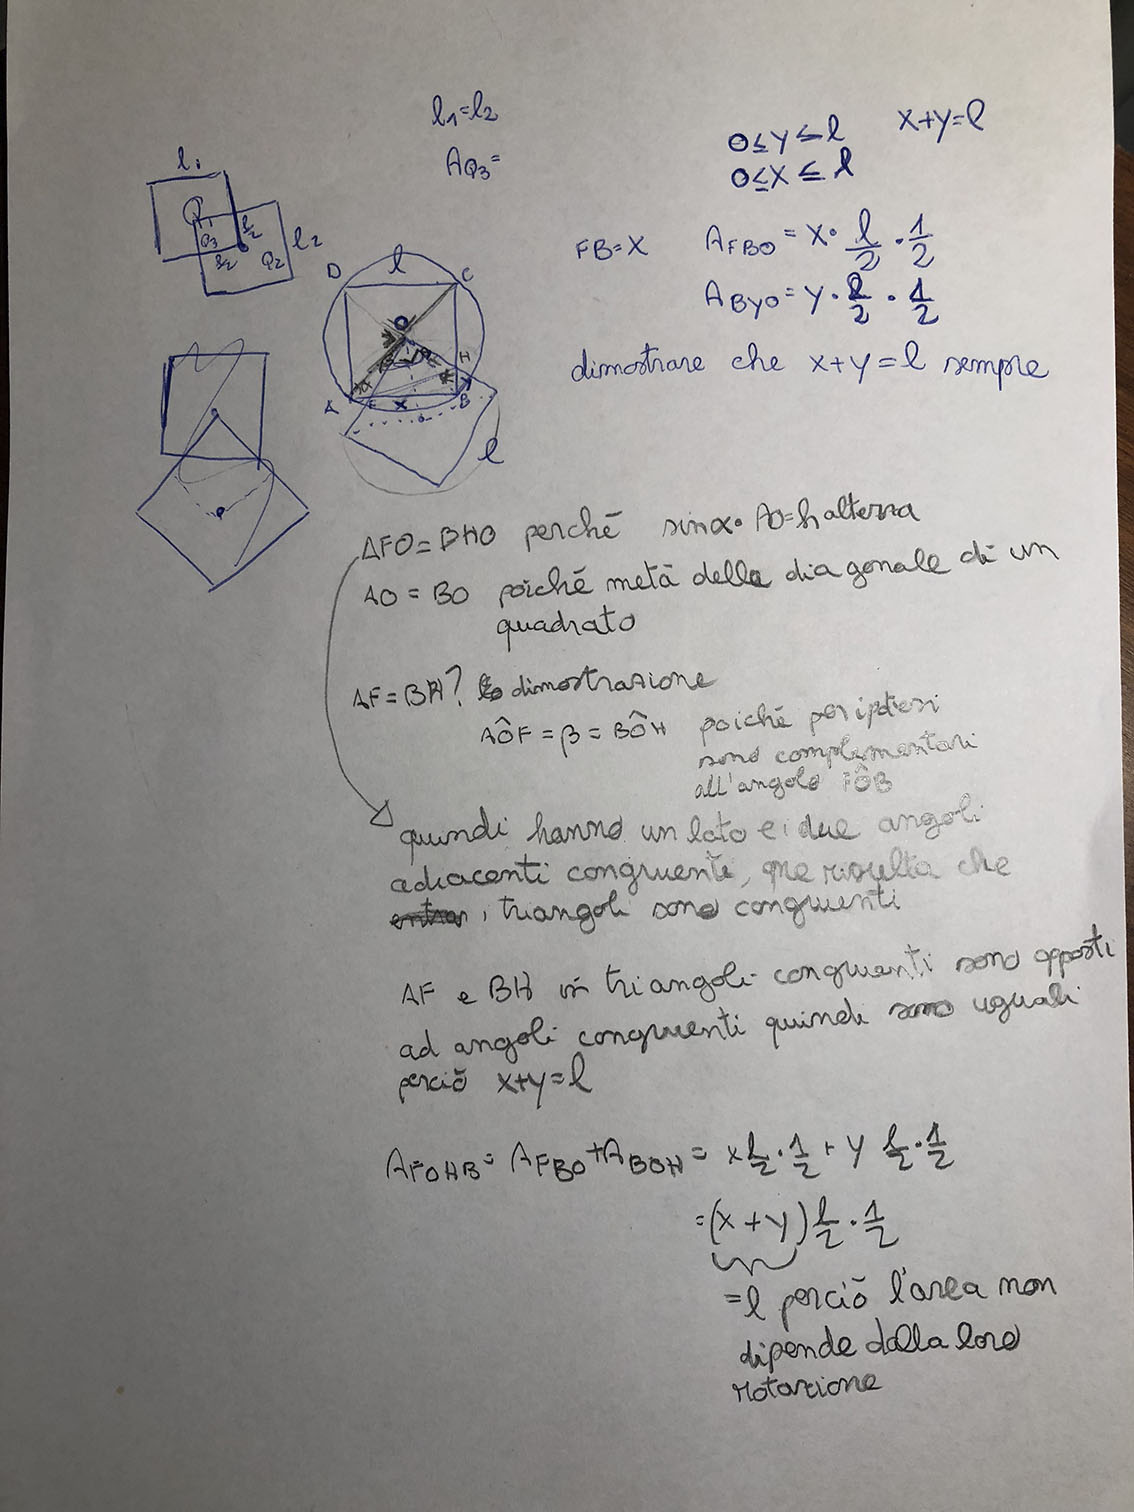 l₁=l₂
A_Q₃=
0≤y≤l
0≤x≤l
x+y=l
l₁
Q₁
Q₃
l/2
l/2
Q₂
l₂
D
l
C
O
H
A
F
x
B
l
FB=x
A_FBO = x · l/2 · 1/2
A_ByO = y · l/2 · 1/2
dimostrare che x+y=l sempre
AFO=BHO perché sinα·AO=h altezza
AO=BO poiché metà della diagonale di un
quadrato
AF=BH? dimostrazione
AÔF=β=BÔH poiché per ipotesi
sono complementari
all'angolo FÔB
quindi hanno un lato e i due angoli
adiacenti congruenti, ne risulta che
i triangoli sono congruenti
AF e BH in triangoli congruenti sono opposti
ad angoli congruenti quindi sono uguali
perciò x+y=l
A_FOHB = A_FBO + A_BOH = x l/2 · 1/2 + y l/2 · 1/2
=(x+y) l/2 · 1/2
=l perciò l'area non
dipende dalla loro
rotazione